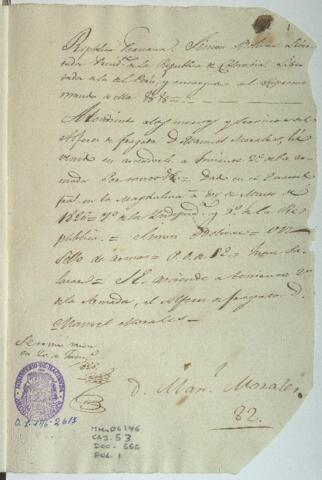 Republica Peruana. Simon Bolivar Liber
tador Presid.te de la Republica de Colombia Liber
tador de la del Perú, y encargado del Supremo
mando de ella &a &a =
Atendiendo a los meritos y servicios del
Alferez de fragata D. Manuel Morales, he
venido en ascenderlo a Teniente 2.o de la Ar
mada Por tanto &a = Dado en el Cuartel
gral. en la Magdalina a dos de Marzo de
1826 = 7.o de la Independ.a y 5.o de la Re
publica. = Simon Bolivar = Un
sello de armas = P. O. de S. E. = Juan Sa
lazar = S. E. asciende a Teniente 2.o
de la Armada, al Alferez de fragata D.
Manuel Morales =
Se tomó razon
en
D. Man.l Morales
82.
MINISTERIO DE HACIENDA
O.L. 146-2613
MH-OL146
CAJ. 53
DOC- 555
FOL. 1